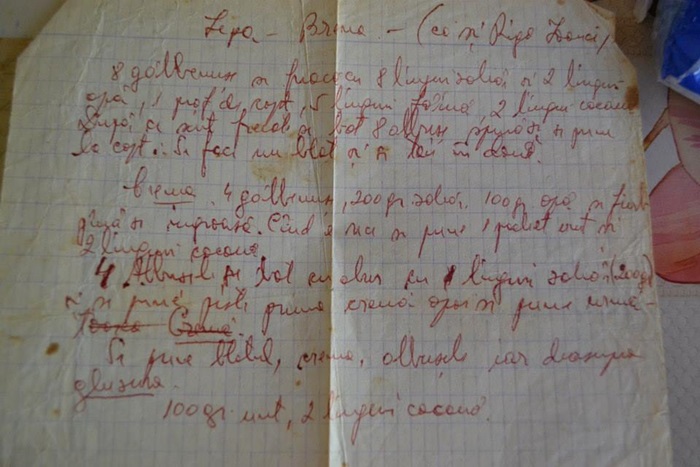 - (ca și Rigo Ianci)
8 gălbenuși se freacă cu 8 linguri zahăr și 2 linguri
apă, 1 praf de copt, 5 linguri făină, 2 linguri cacao
După ce sînt frecate se bat 8 albușuri spumă și se pune
la copt. Se face un blat și se taie în două.
Crema 4 gălbenușuri, 200gr zahăr, 100gr apă se fierb
pînă se îngroașă. Cînd e rece se pune 1 pachet unt și
2 linguri cacao.
4 Albușele se bat cu abur cu linguri zahăr (200g)
și se pune peste prima cremă apoi se pune urmă-
Crema.
Se pune blatul, crema, albușele iar deasupra
glazura.
100gr unt, 2 linguri cacao.